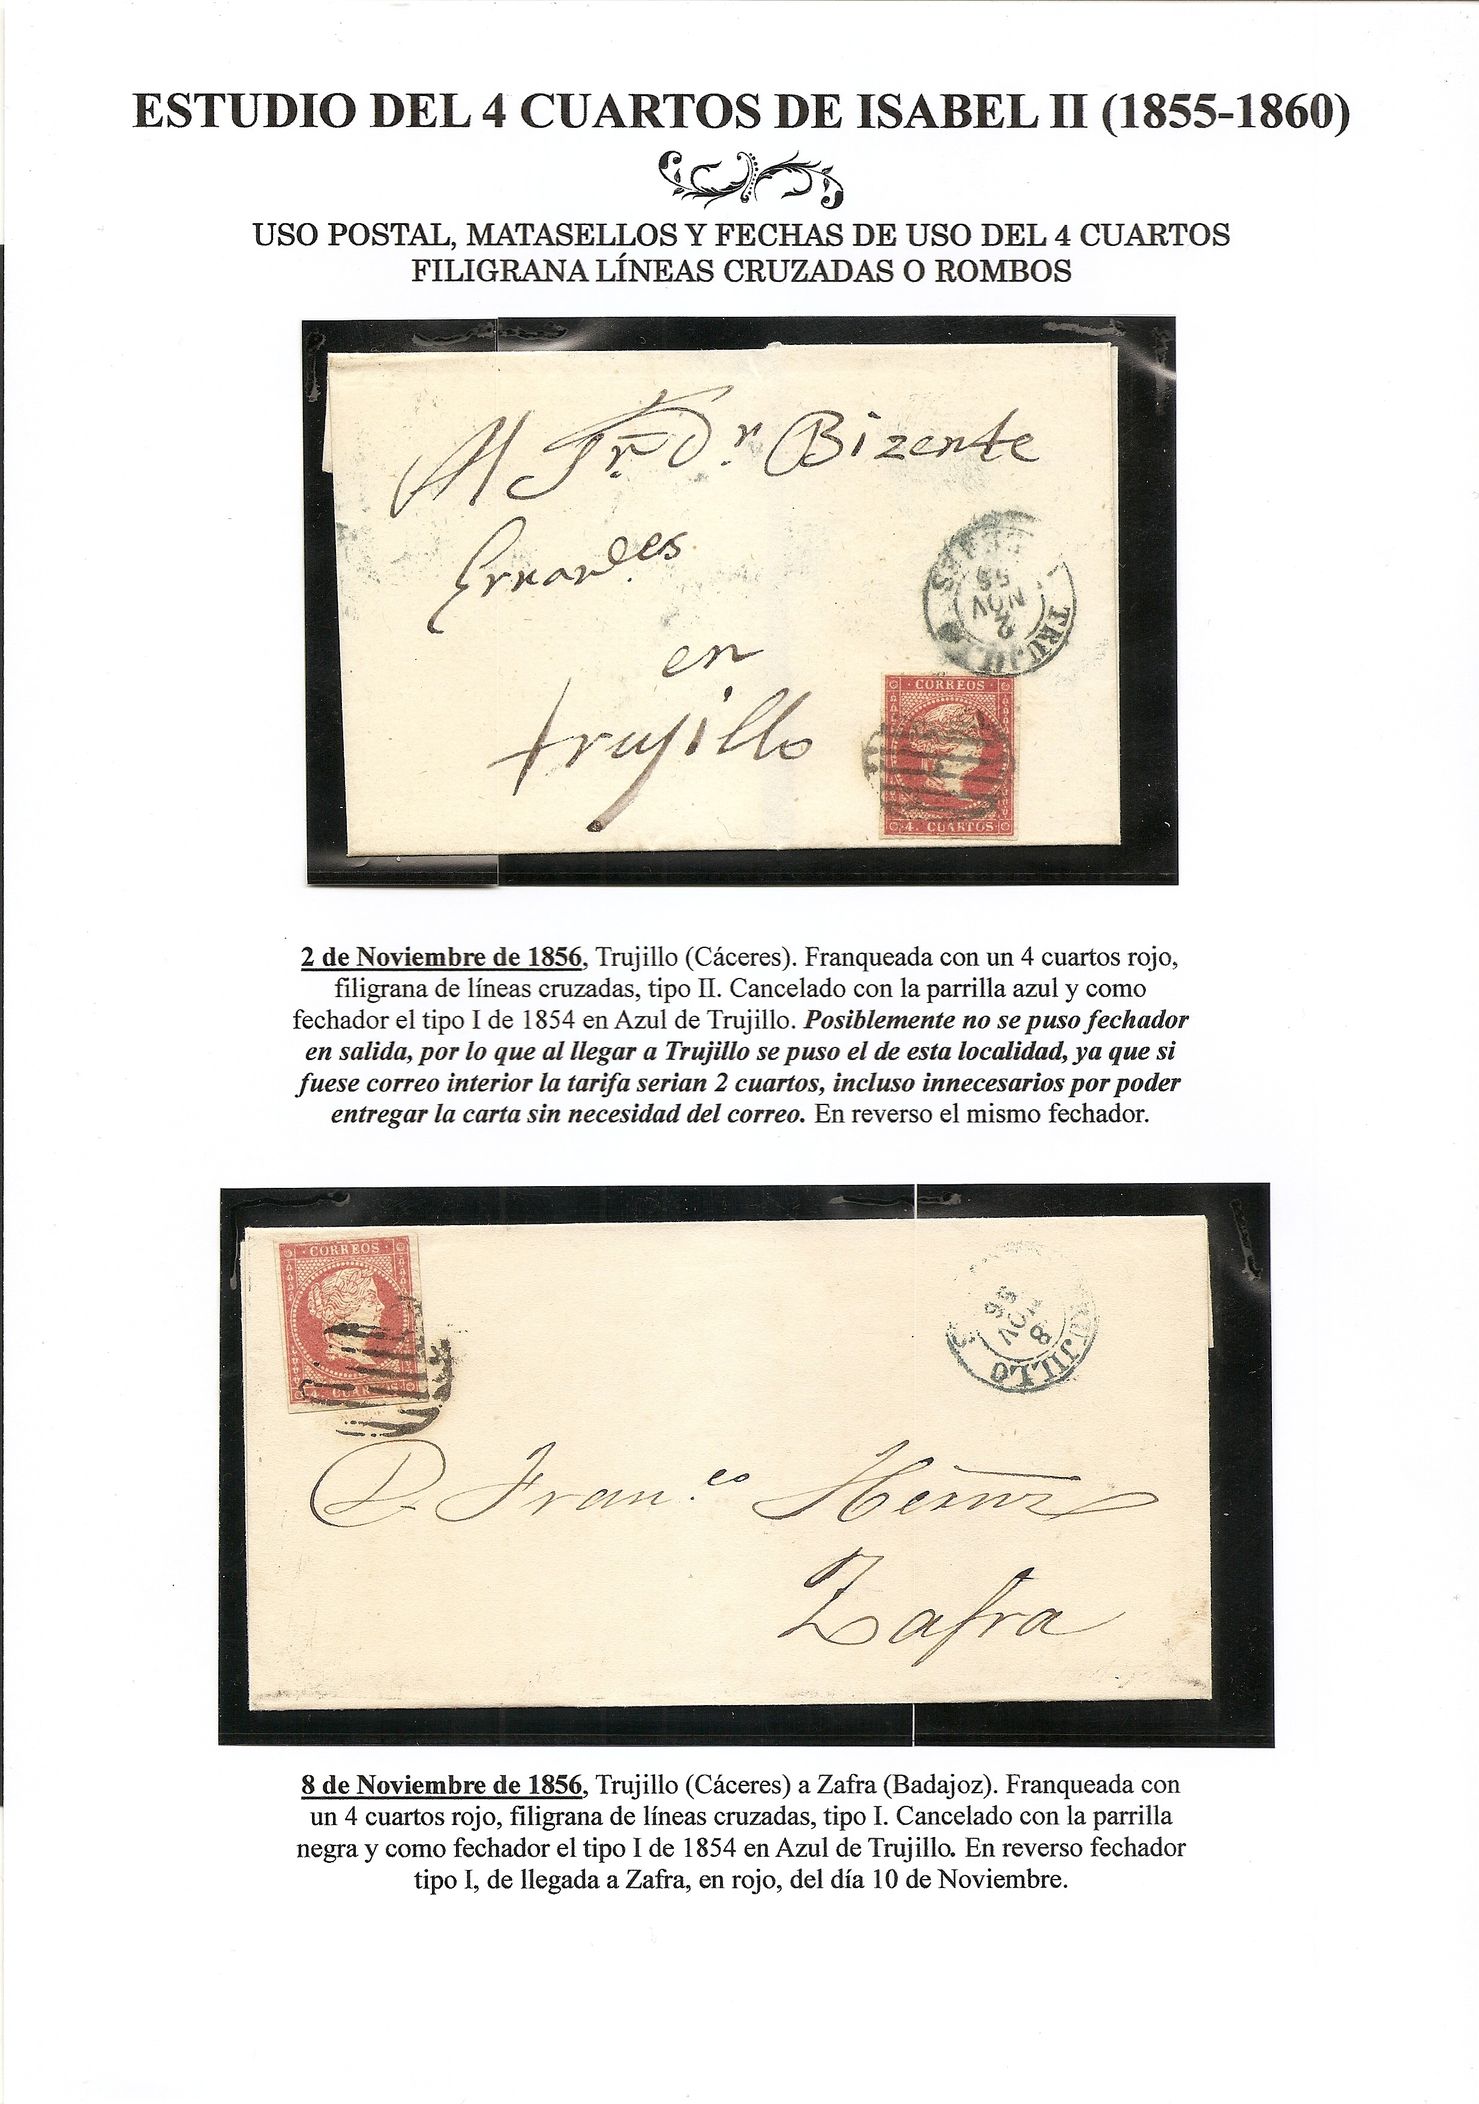 ESTUDIO DEL 4 CUARTOS DE ISABEL II (1855-1860)
USO POSTAL, MATASELLOS Y FECHAS DE USO DEL 4 CUARTOS
FILIGRANA LÍNEAS CRUZADAS O ROMBOS
Al Sr. Dn Bizente
Ernandes
en
trujillo
TRUJILLO
2
NOV
CORREOS
4. CUARTOS
2 de Noviembre de 1856, Trujillo (Cáceres). Franqueada con un 4 cuartos rojo,
filigrana de líneas cruzadas, tipo II. Cancelado con la parrilla azul y como
fechador el tipo I de 1854 en Azul de Trujillo. Posiblemente no se puso fechador
en salida, por lo que al llegar a Trujillo se puso el de esta localidad, ya que si
fuese correo interior la tarifa serian 2 cuartos, incluso innecesarios por poder
entregar la carta sin necesidad del correo. En reverso el mismo fechador.
CORREOS
4. CUARTOS
UJILLO
8
NOV
56
D. Franco
Zafra
8 de Noviembre de 1856, Trujillo (Cáceres) a Zafra (Badajoz). Franqueada con
un 4 cuartos rojo, filigrana de líneas cruzadas, tipo I. Cancelado con la parrilla
negra y como fechador el tipo I de 1854 en Azul de Trujillo. En reverso fechador
tipo I, de llegada a Zafra, en rojo, del día 10 de Noviembre.